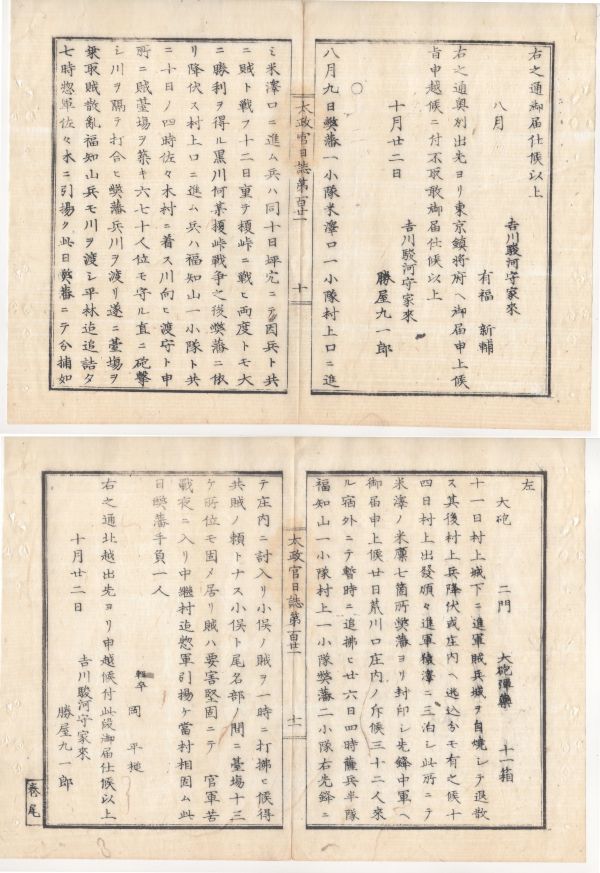 右之通御届仕候以上
八月
吉川駿河守家來
有福 新輔
右之通奥羽出先ヨリ東京鎮將府ヘ御届申上候
旨申越候ニ付不取敢御届仕候以上
十月廿二日
吉川駿河守家來
勝屋九一郎
○
八月九日弊藩一小隊米澤口一小隊村上口ニ進
太政官日誌第百廿一
十
ミ米澤口ニ進ム兵ハ同十日坪穴ニテ因兵ト共
ニ賊ト戰フ十二日重テ榎峠ニ戰ヒ両度トモ大
ニ勝利ヲ得ル黒川何某榎峠戰爭之後弊藩ニ依
リ降伏ス村上口ニ進ム兵ハ福知山一小隊ト共
ニ十日ノ四時佐々木村ニ着ス川向ヒ渡守ト申
所ニ賊臺場ヲ築キ六七十人位モ守ル直ニ砲撃
シ川ヲ隔テ打合ヒ弊藩兵川ヲ渡リ遂ニ臺場ヲ
乗取賊散亂福知山兵モ川ヲ渡シ平林迠追詰タ
七時惣軍佐々木ニ引揚ク此日弊藩ニテ分捕如
左
大砲 二門 大砲彈藥 十一箱
十一日村上城下ニ進軍賊兵城ヲ自焼シテ退散
ス其後村上兵降伏或庄内ヘ逃込分モ有之候十
四日村上出發順々進軍猿澤ニ三泊シ此所ニテ
米澤ノ米廩七箇所弊藩ヨリ封印シ先鋒中軍ヘ
御届申上候廿日荒川口庄内ノ斥候三十二人來
ル宿外ニテ暫時ニ追拂ヒ廿六日四時薩兵半隊
福知山一小隊村上一小隊弊藩二小隊右先鋒ニ
太政官日誌第百廿一
十一
テ庄内ニ討入リ小俣ノ賊ヲ一時ニ打拂ヒ候得
共賊ノ頼トナス小俣ト尾名部ノ間ニ臺場十三
ケ所位モ固メ居リ賊ハ要害堅固ニテ 官軍苦
戰夜ニ入リ中繼村迠惣軍引揚ケ當村相固ム此
日弊藩手負一人
輕卒 岡 平槌
右之通北越出先ヨリ申越候付此段御届仕候以上
十月廿二日
吉川駿河守家來
勝屋九一郎
巻尾